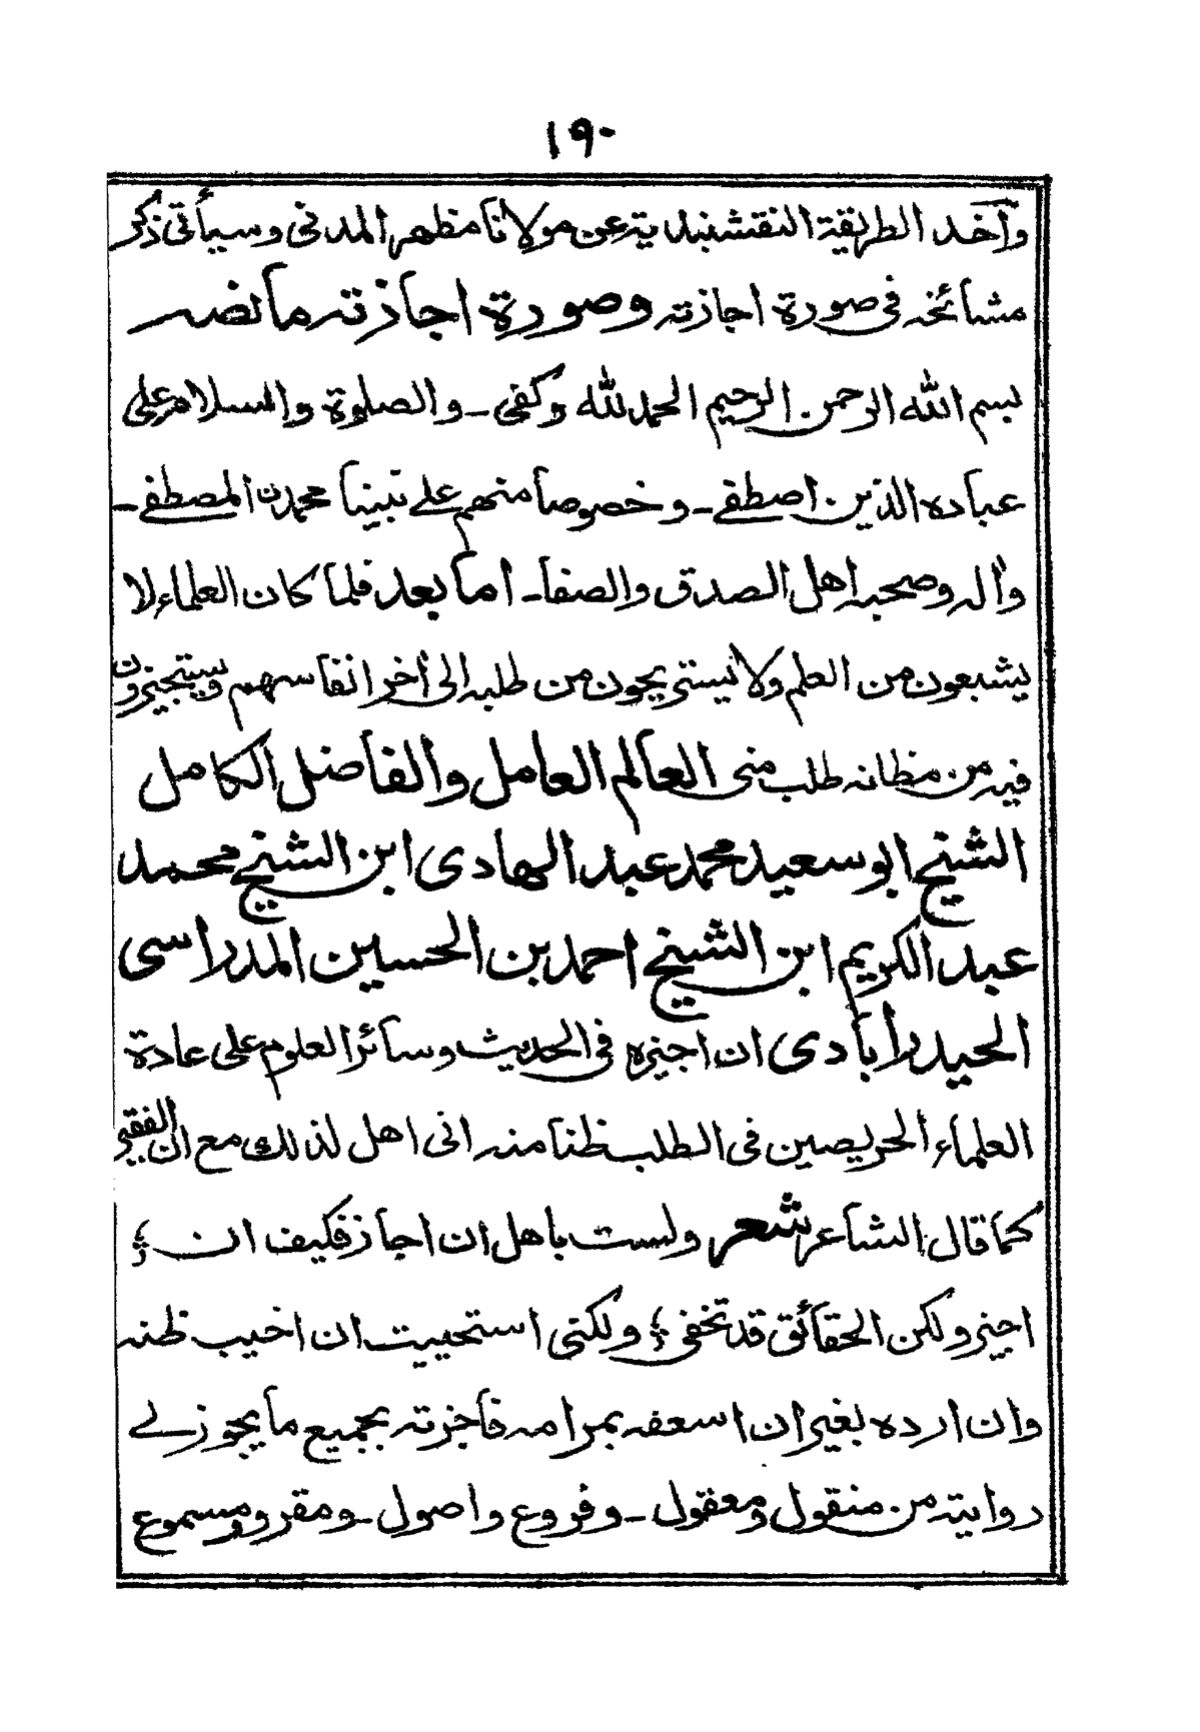 ١٩٠
وأخذ الطريقة النقشبندية عن مولانا مظهر المدنى وسيأتى ذكر
مشائخه فى صورة اجازته وصورة اجازته ما نصه
بسم الله الرحمن الرحيم الحمد لله وكفى ـ والصلوة والسلام على
عباده الذين اصطفى ـ وخصوصا منهم على نبينا محمدن المصطفى ـ
واله وصحبه اهل الصدق والصفا ـ اما بعد فلما كان العلماء لا
يشبعون من العلم ولا يستريحون من طلبه الى أخر انفاسهم ويستجيزون
فيه من مظانه طلب منى العالم العامل والفاضل الكامل
الشيخ ابو سعيد محمد عبد الهادى ابن الشيخ محمد
عبد الكريم ابن الشيخ احمد بن الحسين المدراسى
الحيدرأبادى ان اجيزه فى الحديث وسائر العلوم على عادة
العلماء الحريصين فى الطلب ظنا منه انى اهل لذلك مع ان الفقير
كما قال الشاعر شعر ولست باهل ان اجاز فكيف ان ؛
اجيز ولكن الحقائق قد تخفى ؛ ولكنى استحييت ان اخيب ظنه
وان ارده بغير ان اسعفه بمرامه فاجزته بجميع ما يجوز لے
روايته من منقول ومعقول ـ وفروع واصول ـ ومقرو ومسموع